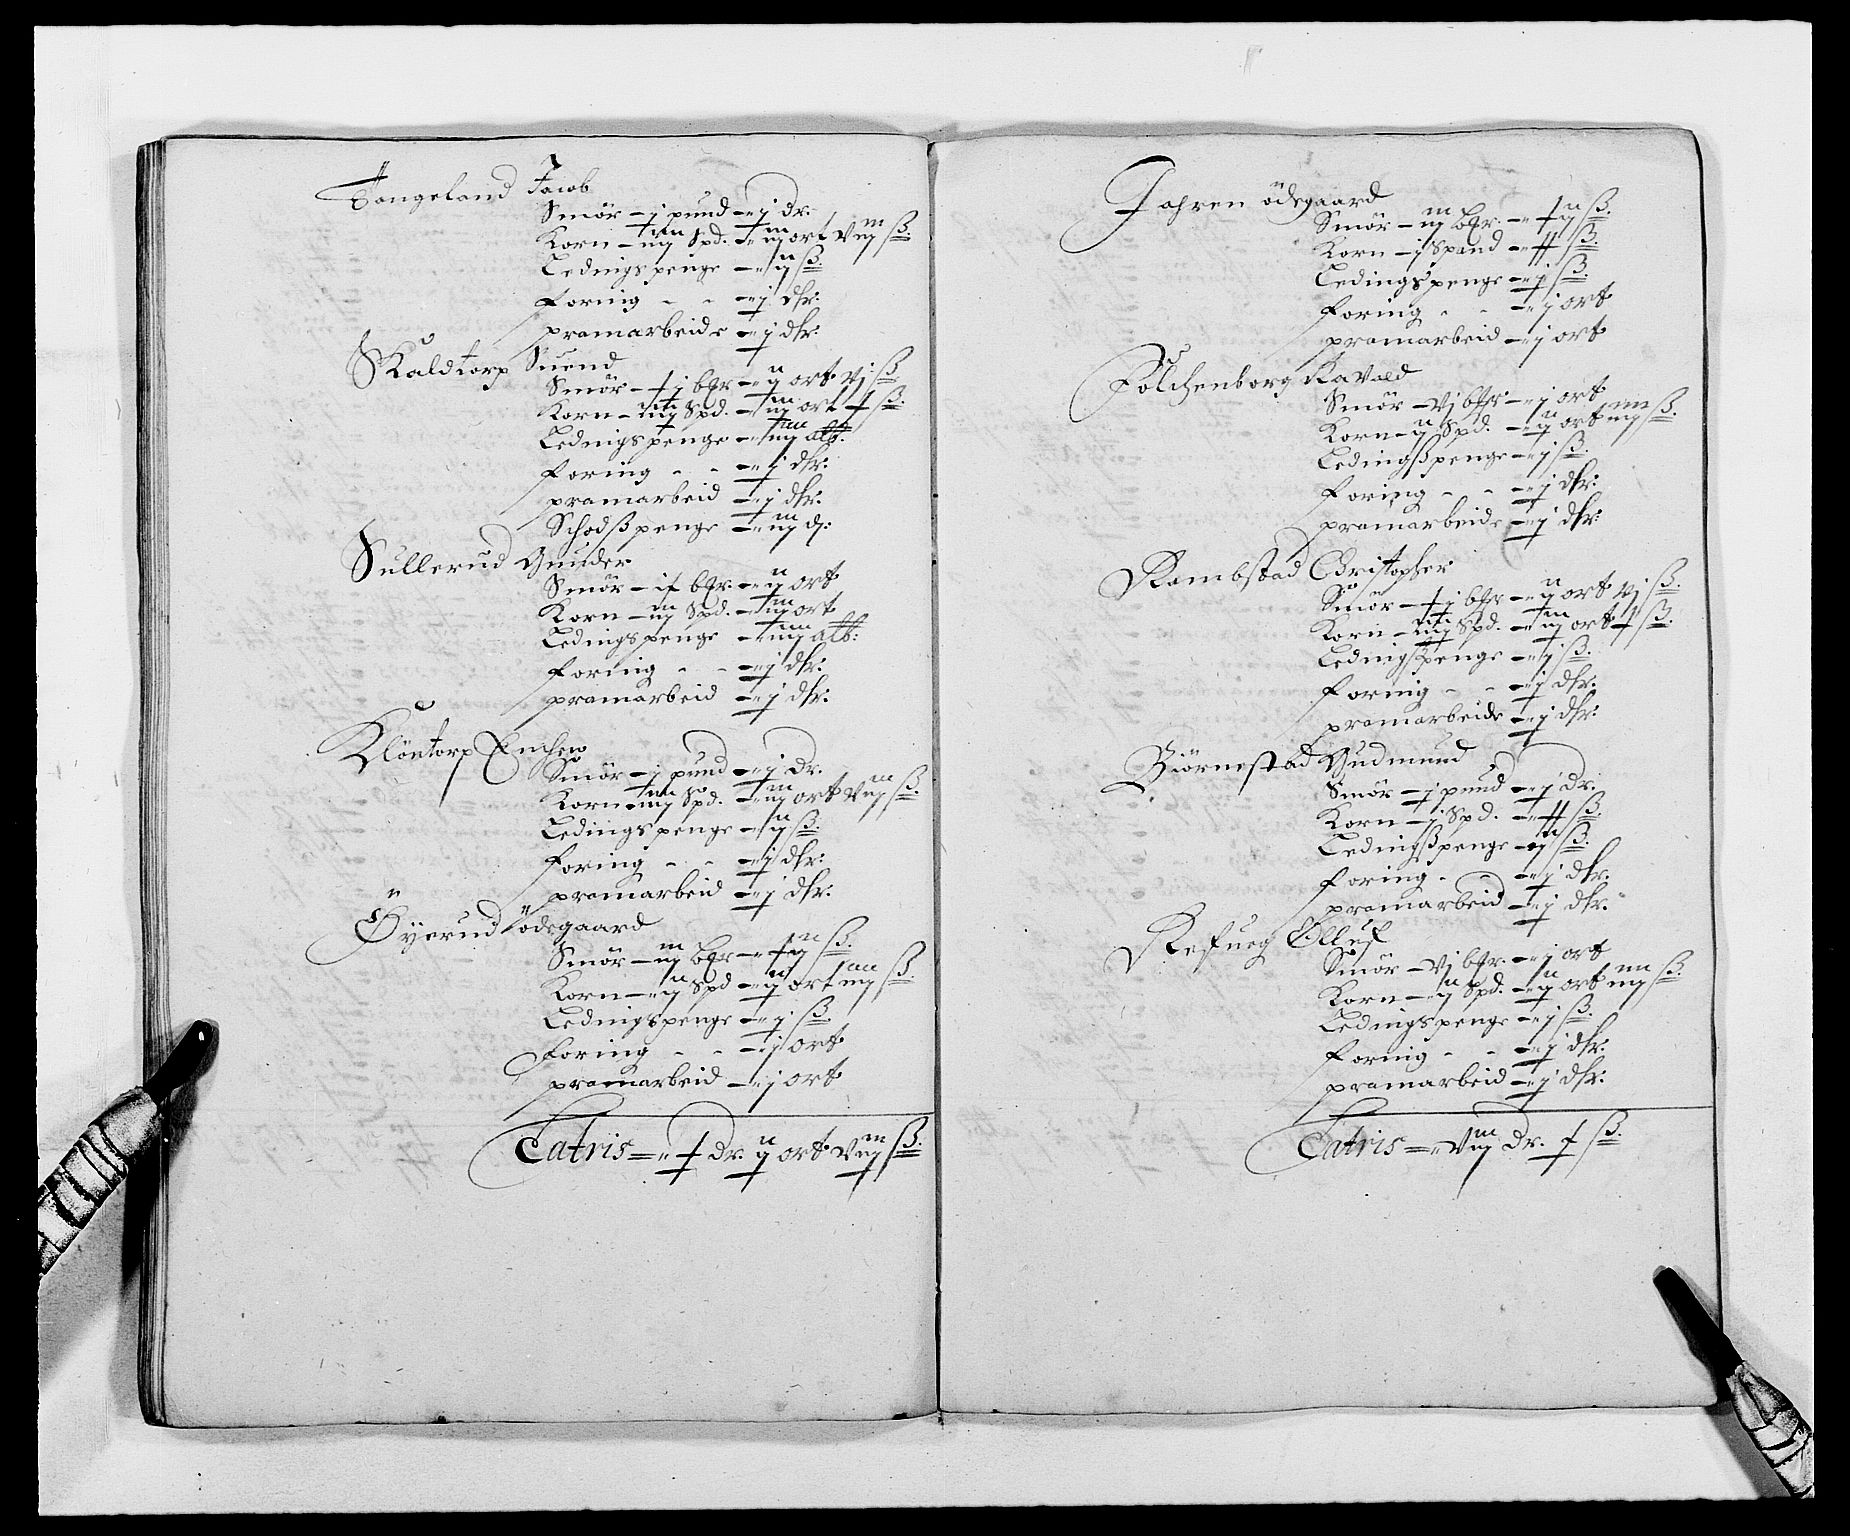 Tangeland Jacob
Smör - j pund - j dr.
Korn - iiij Spd. - iij ort viij ß.
Ledingspenge - ij ß
foring - - j dlr:
pramarbeide - j dlr:
Skaldtorp Suend
Smör - + j bßr - ij ort vj ß
Korn - iiij Spd. - iij ort + ß.
Ledingspenge - iiij alb.
foring - - j dlr:
pramarbeid - j dlr:
Schodßpenge - iij d:
Sullerud Gunder
Smör - ix bßr. - ij ort
Korn - iij Spd. - iij ort
Ledingspenge - iiij alb:
foring - - j dlr:
pramarbeid - j dlr:
Klöntorp Enchen
Smör - j pund - j dr.
Korn - iiij Spd. - iij ort viij ß.
Ledingspenge - ij ß.
foring - - j dlr:
pramarbeid - j dlr:
Öyerud ödegaard
Smör - iij bßr - +ij ß.
Korn - ij Spd - ij ort iiij ß.
Ledingspenge - j ß.
Foring - - j ort
pramarbeid - j ort
Latris = + dr. ij ort viij ß.
Jahren ödegaard
Smör - iij bßr. - +ij ß.
Korn - j Spand - ++ ß.
Ledingspenge - j ß.
foring - - j ort
pramarbeid - j ort
Folchenborg Ravald
Smör - vj bßr - j ort
Korn - ij Spd. - ij ort iiij ß.
Ledingßpenge - j ß.
foring - - j dlr:
pramarbeide - j dlr:
Rambstad Christopher
Smör - + j bßr - ij ort vj ß.
Korn - iiij Spd. - iij ort + ß.
Ledingßpenge - j ß.
foring - - j dlr.
pramarbeide - j dlr:
Biörnestad Gudmund
Smör - j pund - j dr.
Korn - j Spd. - ++ ß.
Ledingßpenge - ij ß.
foring - j dlr.
pramarbeid - j dlr.
Refueg Olluf
Smör - vj bßr. - j ort
Korn - ij Spd. - ij ort iiij ß.
Ledingspenge - j ß.
foring - - j dlr:
pramarbeid - j dlr:
Latris = viij dr. + ß.